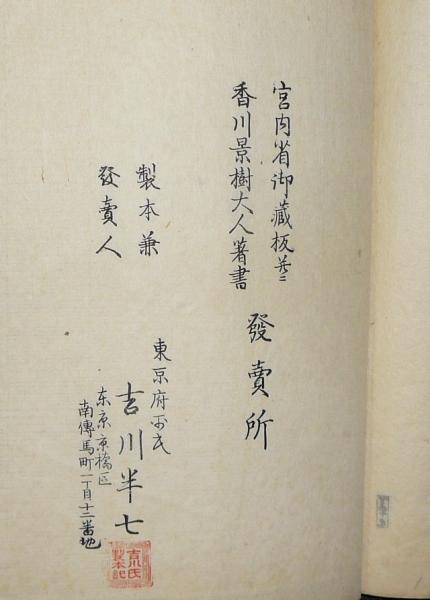 宮内省御藏板並ニ
香川景樹大人著書
發賣所
製本兼
發賣人
東京府平民
吉川半七
东京京橋区
南傳馬町一丁目十二番地
吉川氏
製本記